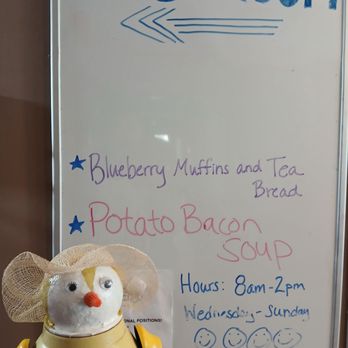 Blueberry Muffins and Tea
Bread
Potato Bacon
Soup
Hours: 8am-2pm
Wednesday-Sunday
ONAL POSITIONS!